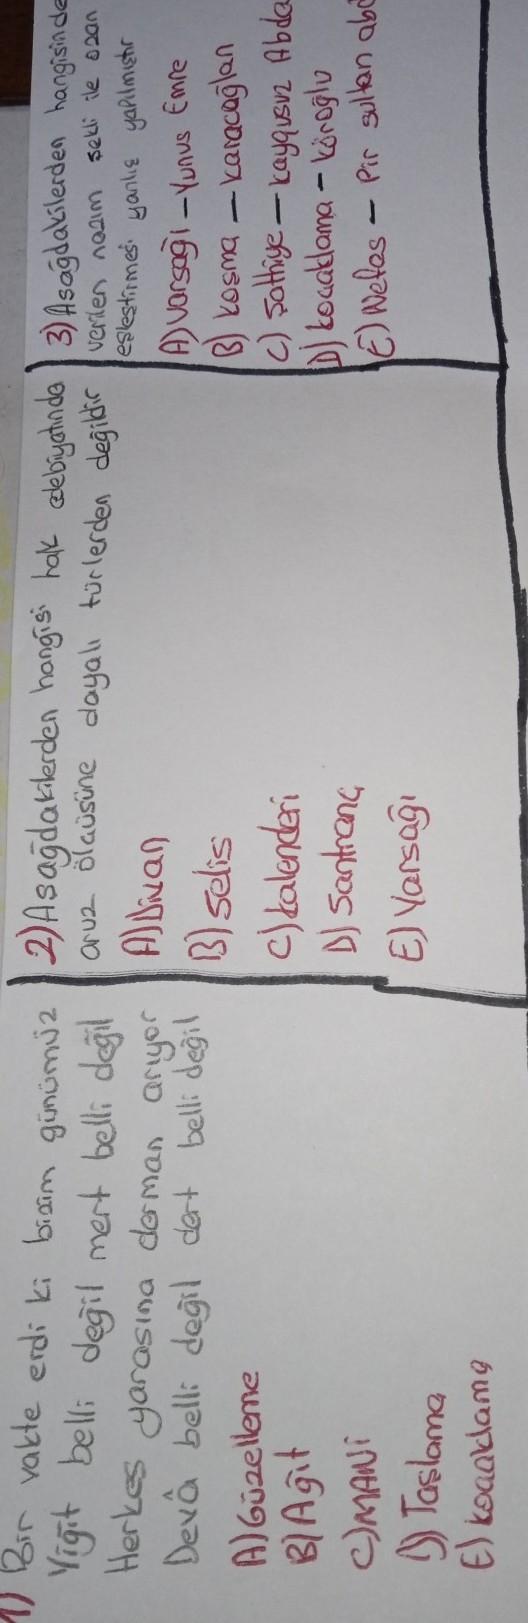 1) Bir vakte erdi ki bizim günümüz
Yiğit belli değil mert belli değil
Herkes yarasına derman arıyor
Devâ belli değil dert belli değil
A) Güzelleme
B) Ağıt
C) MANİ
D) Taşlama
E) koçaklama
2) Asağdakilerden hangisi halk edebiyatında
aruz ölçüsüne dayalı türlerden değildir
A) Divan
B) Selis
C) kalenderi
D) Santranç
E) Varsağı
3) Asağdakilerden hangisinde
verilen nazım sekli ile ozan
eslestirmesi yanlış yapılmıştır
A) varsağı - Yunus Emre
B) kosma - karacaoğlan
C) Sathiye - kaygusuz Abda
D) kocaklama - köroğlu
E) Nefes - Pir sultan abd